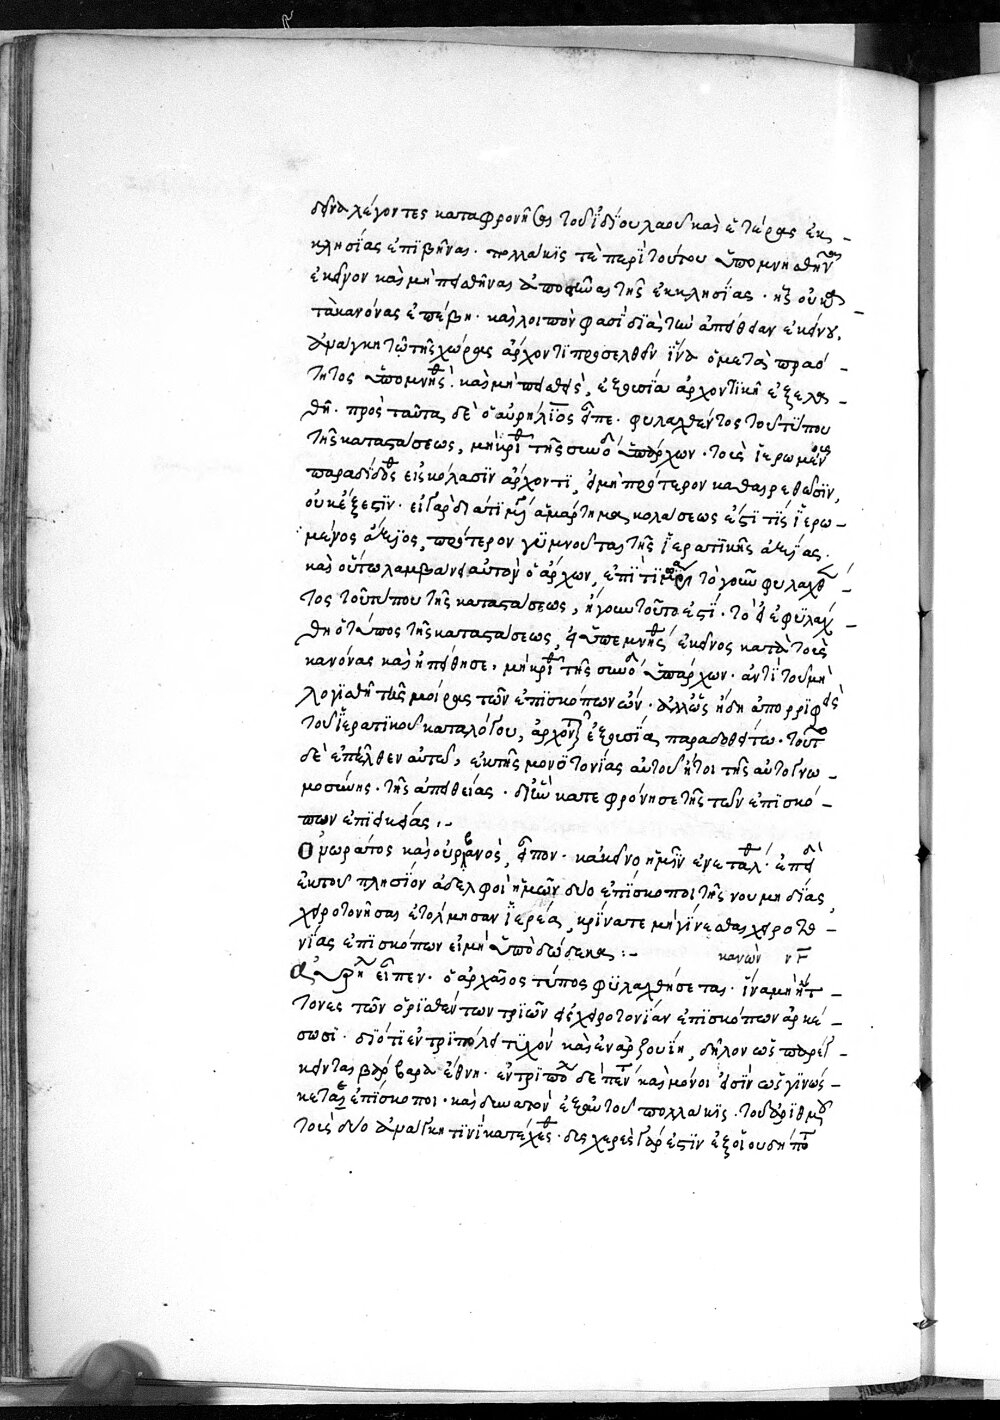 δεῖνα λέγοντες καταφρονῆσαι τοῦ ἰδίου λαοῦ καὶ ἑτέραις ἐκ-
κλησίαις ἐπιβῆναι. πολλάκις τὲ περὶ τούτου ὑπομνησθῆναι
ἐκεῖνον καὶ μὴ πεισθῆναι ἀποστῆναι τῆς ἐκκλησίας. ἧς οὐ κατὰ
τὰ κανόνας ἐπέβη. καὶ λοιπόν φασι διὰ τὴν ἀπείθειαν ἐκείνου,
ἀνάγκη τῷ τῆς χώρας ἄρχοντι προσελθεῖν ἵνα ὁ μετὰ πραό-
τητος ὑπομνησθεὶς. καὶ μὴ πεισθεὶς, ἐξουσία ἀρχοντικῇ ἐξελα-
θῇ. πρὸς ταῦτα δὲ ὁ αὐρήλιος εἶπε. φυλαχθέντος τοῦ τύπου
τῆς καταστάσεως, μὴ κριθῇ τῆς συνόδου ὑπάρχων. τοὺς ἱερωμένους
παραδίδοσθαι εἰς κόλασιν ἄρχοντι, εἰ μὴ πρότερον καθαιρεθῶσιν,
οὐκ ἔξεστιν. εἰ γὰρ διά τι ἁμάρτημα κολάσεως ἐστί τις ἱερω-
μένος ἄξιος, πρότερον γυμνοῦται τῆς ἱερατικῆς ἀξίας.
καὶ οὕτω λαμβάνει αὐτὸν ὁ ἄρχων, ἐπὶ τιμωρίᾳ τὸ γοῦν φυλαχθέν-
τος τοῦ τύπου τῆς καταστάσεως, ἤγουν τοῦτο ἐστί. τὸ εἰ ἐφυλάχ-
θη ὁ τύπος τῆς καταστάσεως, εἰ ὑπεμνήσθη ἐκεῖνος κατὰ τοὺς
κανόνας καὶ ἠπείθησε. μὴ κριθῇ τῆς συνόδου ὑπάρχων. ἀντὶ τοῦ μὴ
λογισθῇ τῆς μοίρας τῶν ἐπισκόπων ὤν. ἀλλ' ὡς ἤδη ἀπορριφεὶς
τοῦ ἱερατικοῦ καταλόγου, ἀρχοντικῇ ἐξουσίᾳ παραδοθήτω. τοῦτο
δὲ ἐπῆλθεν αὐτῷ, ἐκ τῆς μονοτονίας αὐτοῦ ἤτοι τῆς αὐτογνω-
μοσύνης. τῆς ἀπειθείας. δι' ἣν κατεφρόνησε τῆς τῶν ἐπισκό-
πων ἐπιεικείας :-
Ὁνωράτος καὶ οὐρβανὸς, εἶπον. κἀκεῖνο ἡμῖν ἐνετάλθη. ἐπεὶ
ἐκ τοῦ πλησίον ἀδελφοὶ ἡμῶν δύο ἐπίσκοποι τῆς νουμηδίας,
χειροτονῆσαι ἐτόλμησαν ἱερέα, κρίνατε μὴ γίνεσθαι χειροτο-
νίας ἐπισκόπων εἰ μὴ ὑπὸ δώδεκα :- κανὼν ν
Αὐρήλιος εἶπεν. ὁ ἀρχαῖος τύπος φυλαχθήσεται. ἵνα μὴ ἥτ-
τονες τῶν ὁρισθέντων τριῶν εἰς χειροτονίαν ἐπισκόπων ἀρκέ-
σωσι. διότι ἐν τριπόλει τυχὸν καὶ ἐν ἀρζουίῃ, δῆλον ὡς παρεί-
κεινται βάρβαρα ἔθνη. ἐν τριπόλει δὲ πέντε καὶ μόνοι εἰσὶν ὡς γινώσ-
κεται ἐπίσκοποι. καὶ δυνατὸν ἐξ αὐτοῦ πολλάκις. τοῦ ἀριθμοῦ
τοὺς δύο ἀνάγκη τινὶ κατέχεσθαι. δυσχερὲς γάρ ἐστιν ἐξ οἱουδήποτε